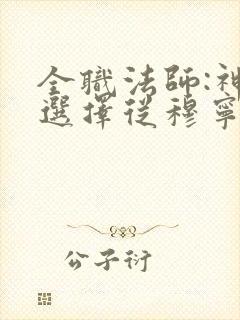 全職法師:神
選擇從穆寧
公子衍